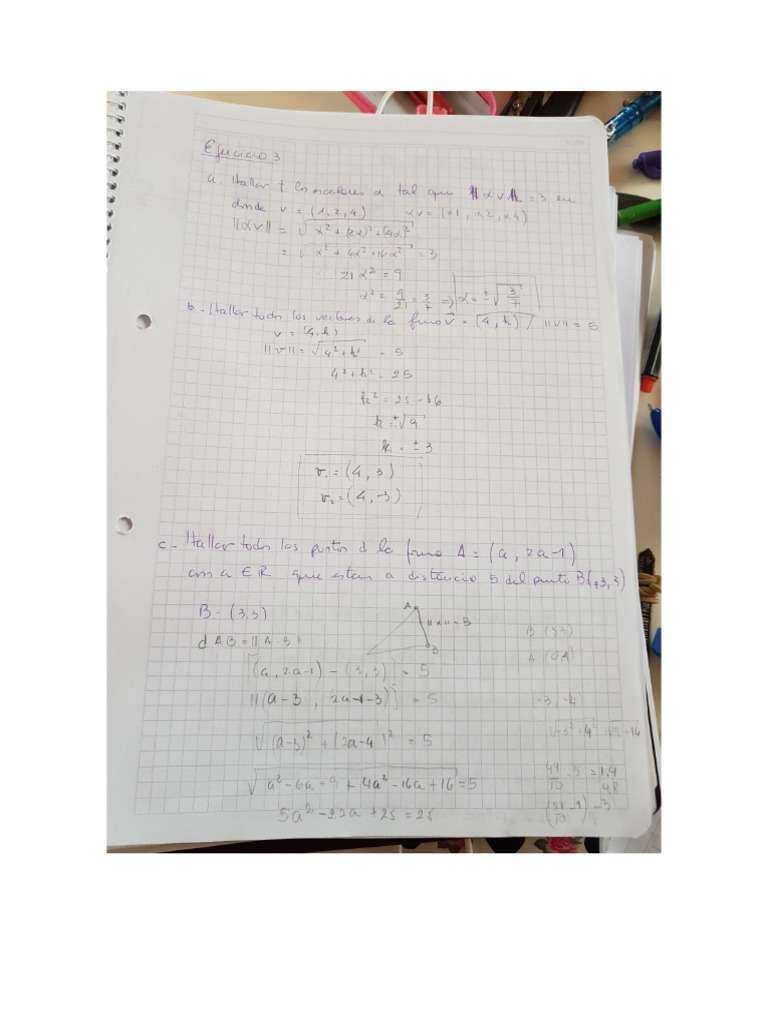 Ejercicio 3
a. Hallar t los escalares α tal que ||αv|| = 3 en
donde v = (1, 2, 4)   αv = (α1, α2, α4)
||αv|| = √(α² + (2α)² + (4α)²)
= √(α² + 4α² + 16α²) = 3
21α² = 9
α² = 9/21 = 3/7 ⇒ α = ±√(3/7)
b - Hallar todos los vectores de la forma v⃗ = (4, k) / ||v|| = 5
v = (4, k)
||v|| = √(4² + k²) = 5
4² + k² = 25
k² = 25 - 16
k = ±√9
k = ± 3
v₁ = (4, 3)
v₂ = (4, -3)
c - Hallar todos los puntos d la forma A = (a, 2a-1)
con a ∈ R que estan a distancia 5 del punto B(+3, 3)
B - (3,3)
d AB = ||A - B||
A
B
B (3,3)
(a, 2a-1) - (3, 3) = 5
||(a-3, 2a-1-3)|| = 5
-3, -4)
√((a-3)² + (2a-4)²) = 5
√(a² - 6a + 9 + 4a² - 16a + 16) = 5
5a² - 22a + 25 = 25